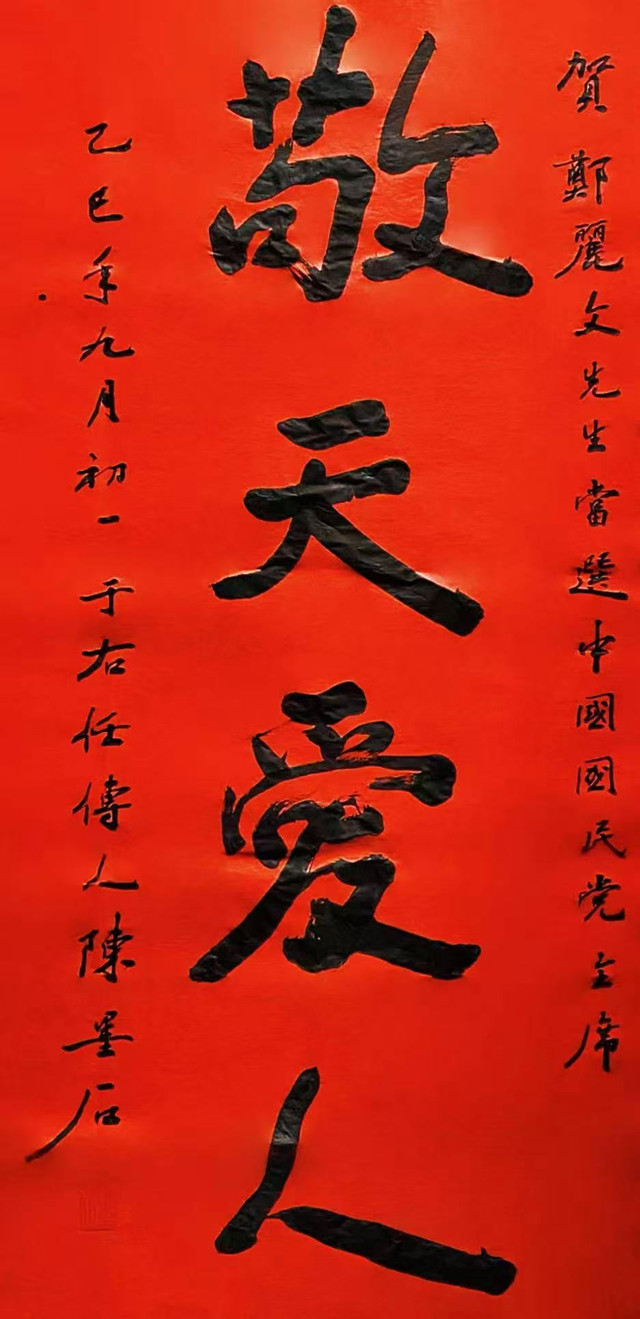 賀鄭麗文先生當選中國國民党主席
敬天爱人
乙巳年九月初一于右任傳人陳墨石